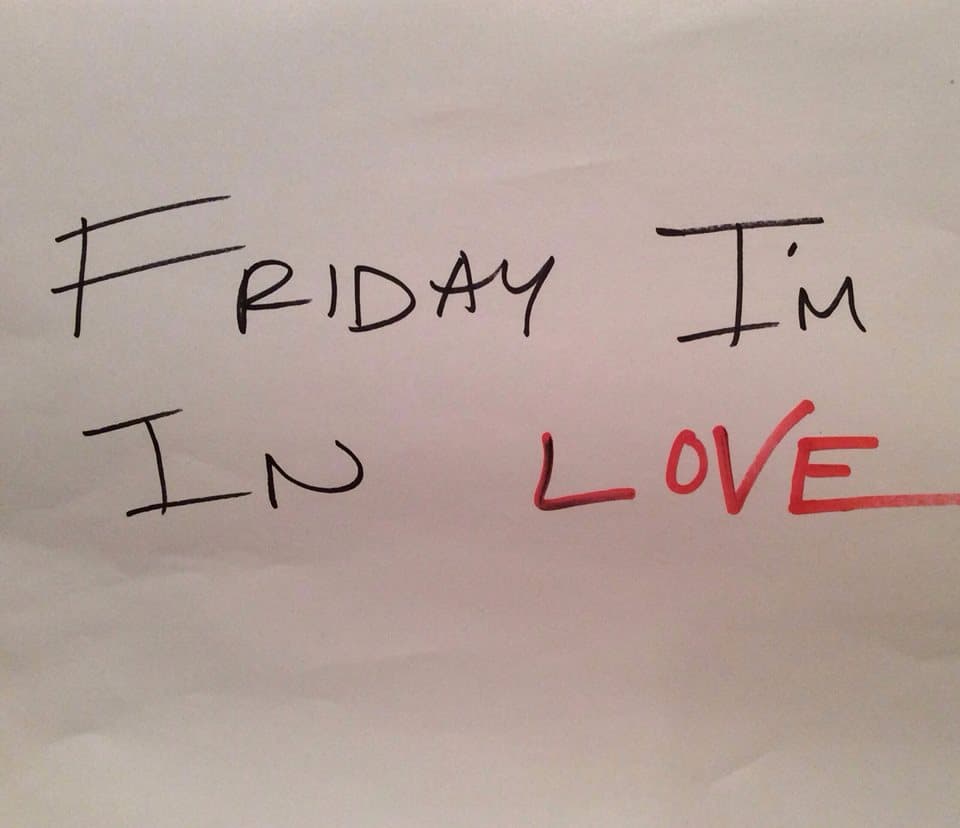 FRIDAY I'M
IN LOVE